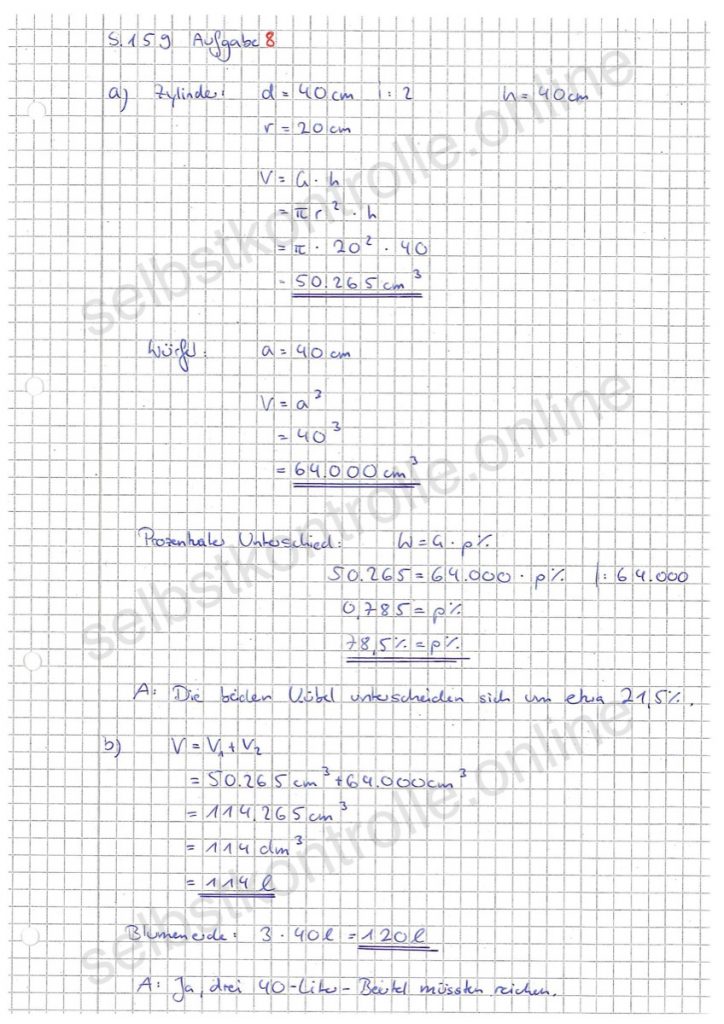 S.159 Aufgabe 8
a) Zylinder: d = 40cm |:2 h = 40cm
r = 20cm
V = G · h
= π r² · h
= π · 20² · 40
= 50.265 cm³
Würfel: a = 40cm
V = a³
= 40³
= 64.000 cm³
Prozentualer Unterschied: W = G · p%
50.265 = 64.000 · p% |: 64.000
0,785 = p%
78,5% = p%
A: Die beiden Kübel unterscheiden sich um etwa 21,5%.
b) V = V₁ + V₂
= 50.265 cm³ + 64.000cm³
= 114.265 cm³
= 114 dm³
= 114 l
Blumenerde: 3 · 40l = 120l
A: Ja, drei 40-Liter-Beutel müssten reichen.
selbstkontrolle.online
selbstkontrolle.online
selbstkontrolle.online